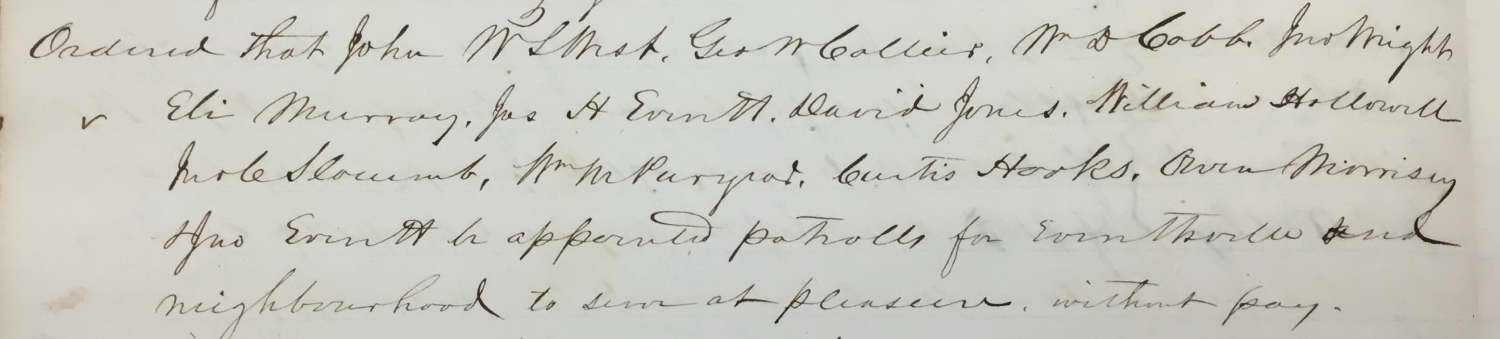 Ordered that John W S West, Geo W Collier, Wm D Cobb. Jno Wright
v Eli Murray, Jas H Everett. David Jones. William Hollowell
Jno C Slocumb, Wm M Puryear. Curtis Hooks. Owen Morrisey
& Jno Everett be appointed patrolls for Everettsville and
neighbourhood to serve at pleasure. without pay.